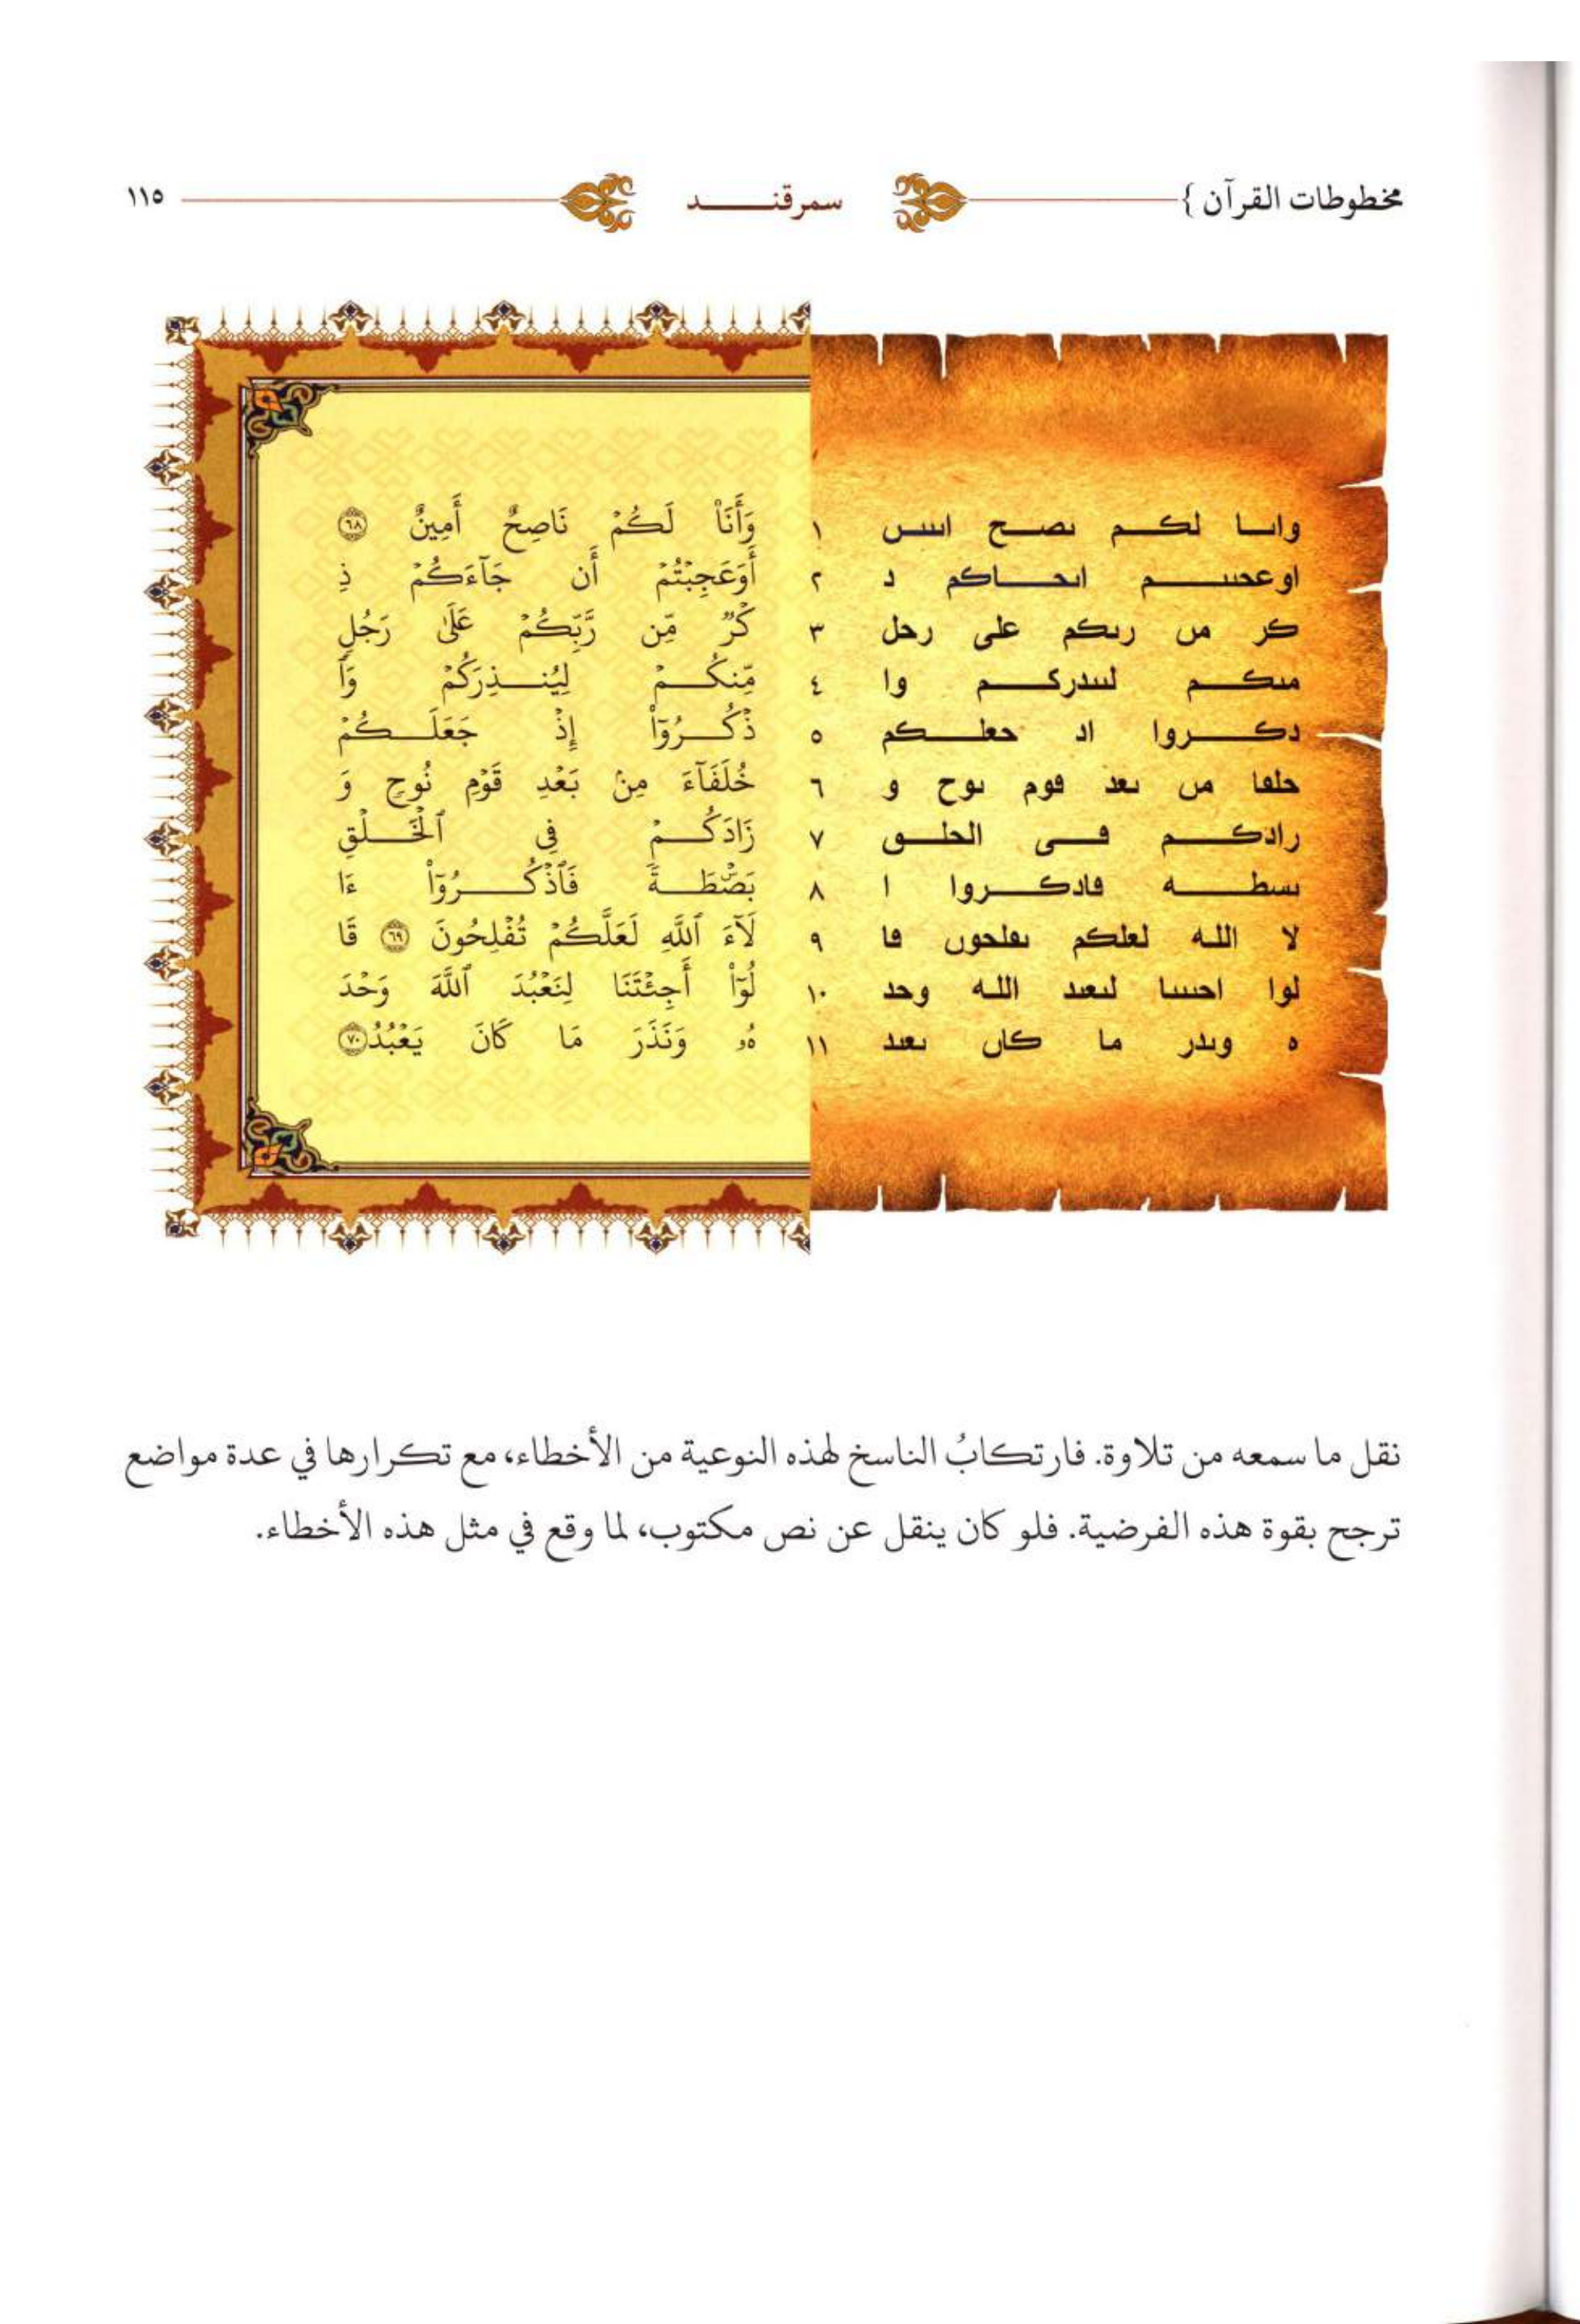 مخطوطات القرآن } سمرقنـــــد ١١٥
وابـا لكـم بصـح اٮٮس ١ وَأَنَا۠ لَكُمۡ نَاصِحٌ أَمِينٌ ٦٨
او عحٮٮــــم اٮحـــاكم د ٢ أَوَعَجِبۡتُمۡ أَن جَآءَكُمۡ ذِ
كر مں رٮكم على رحل ٣ كۡرٞ مِّن رَّبِّكُمۡ عَلَىٰ رَجُلٖ
مٮكـــم لٮٮدركـــم وا ٤ مِّنكُـــمۡ لِيُنـــذِرَكُمۡ وَٱ
دكــــروا اد حعلــــكم ٥ ذۡكُـــرُوٓاْ إِذۡ جَعَلَـــكُمۡ
حلفا مں ٮعد ڡوم ٮوح و ٦ خُلَفَآءَ مِنۢ بَعۡدِ قَوۡمِ نُوحٖ وَ
رادكـــم ڡـــى الحلـــٯ ٧ زَادَكُـــمۡ فِي ٱلۡخَـــلۡقِ
ٮسطـــه ڡادكـــروا ا ٨ بَصۜۡطَـــةٗۖ فَٱذۡكُـــرُوٓاْ ءَا
لا اللـه لعلكم ٮڡلحوں ڡا ٩ لَآءَ ٱللَّهِ لَعَلَّكُمۡ تُفۡلِحُونَ ٦٩ قَا
لوا احٮٮٮا لٮعٮد اللـه وحد ١٠ لُوٓاْ أَجِئۡتَنَا لِنَعۡبُدَ ٱللَّهَ وَحۡدَ
ه وٮدر ما كاں ٮعٮد ١١ هُۥ وَنَذَرَ مَا كَانَ يَعۡبُدُ ٧٠
نقل ما سمعه من تلاوة. فارتكابُ الناسخ لهذه النوعية من الأخطاء، مع تكرارها في عدة مواضع
ترجح بقوة هذه الفرضية. فلو كان ينقل عن نص مكتوب، لما وقع في مثل هذه الأخطاء.